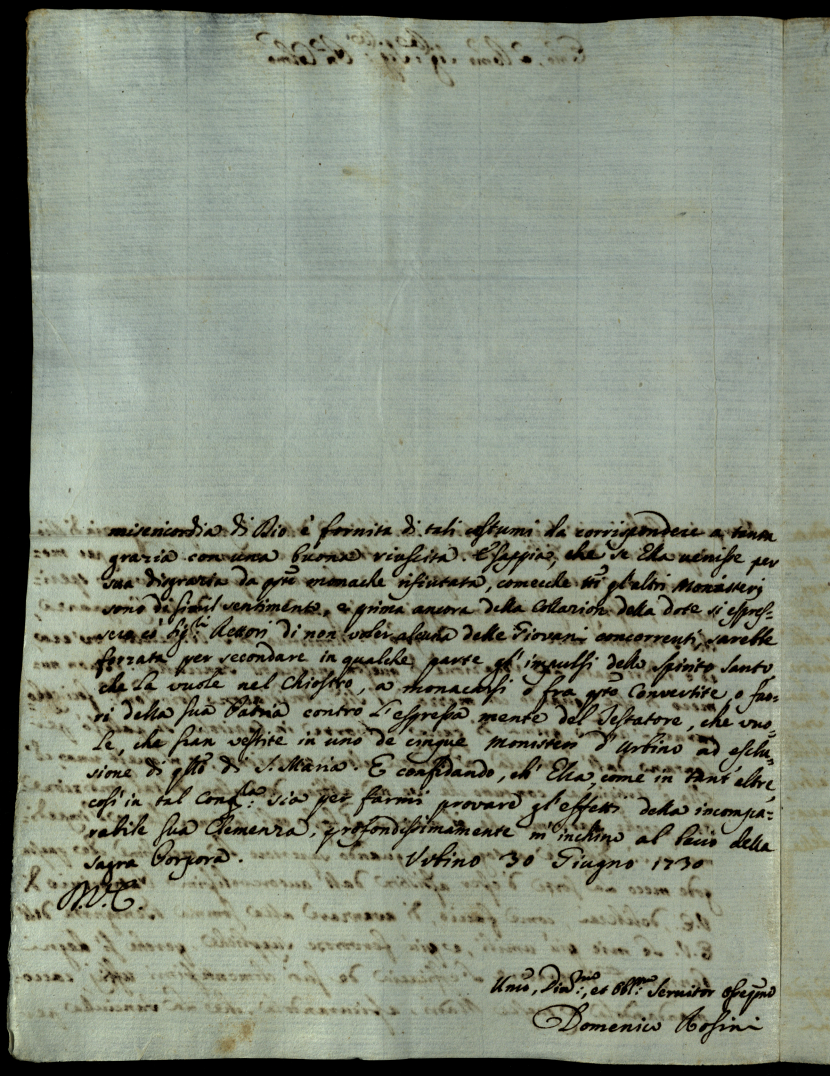 misericordia di Dio è fornita di tali costumi da corrispondere a tanta
grazia con una buona riuscita. E sappia, che se Ella venisse per
sua disgrazia da qste monache rifiutata, comecche tti gl'altri Monasterj
sono di simil sentimento, e prima ancora della Collazion della dote si espres-
sero co' Sigri Rettori di non voler alcuna delle Giovani concorrenti, sarebbe
forzata per secondare in qualche parte gl'impulsi dello Spirito Santo
che la vuole nel Chiostro, a monacarsi o fra qste Convertite, o fuo-
ri della sua Patria contro l'espressa mente del Testatore, che vuo-
le, che sian vestite in uno de cinque monisteri d'Urbino ad esclu-
sione di qsto di S. Maria. E confidando, ch' Ella, come in tant'altre
così in tal Cong.ra sia per farmi provare gl'effetti della incompa-
rabile sua Clemenza, profondissimamente m'inchino al bacio della
sagra Porpora. Urbino 30 Giugno 1730
Umo, Divmo, et Obl.mo Servitor Ossequmo
Domenico Rosini